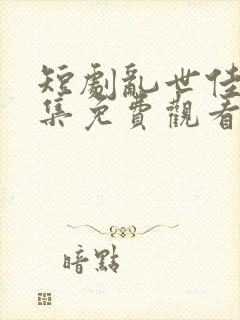 短劇亂世佳
集免費觀看
暗點